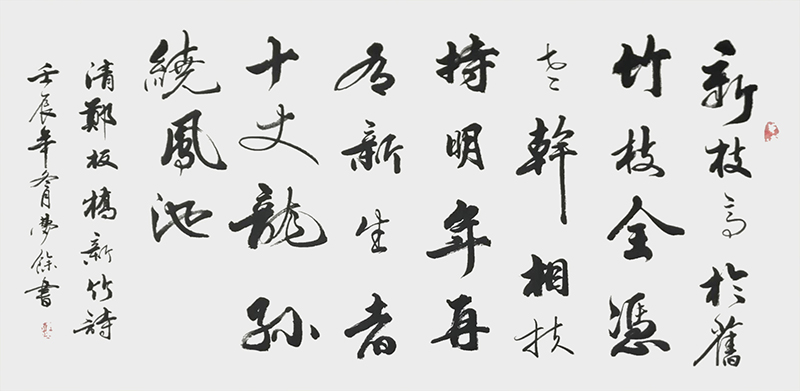 新枝高於舊
竹枝全憑
老幹相扶
持明年再
有新生者
十丈龍孫
繞鳳池
清鄭板橋新竹詩
壬辰年冬月夢餘書